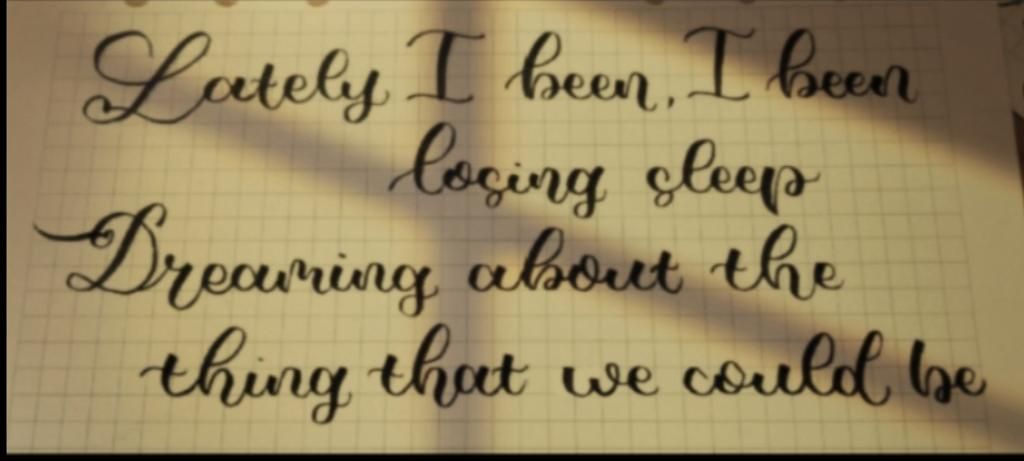 Lately I been, I been
losing sleep
Dreaming about the
thing that we could be